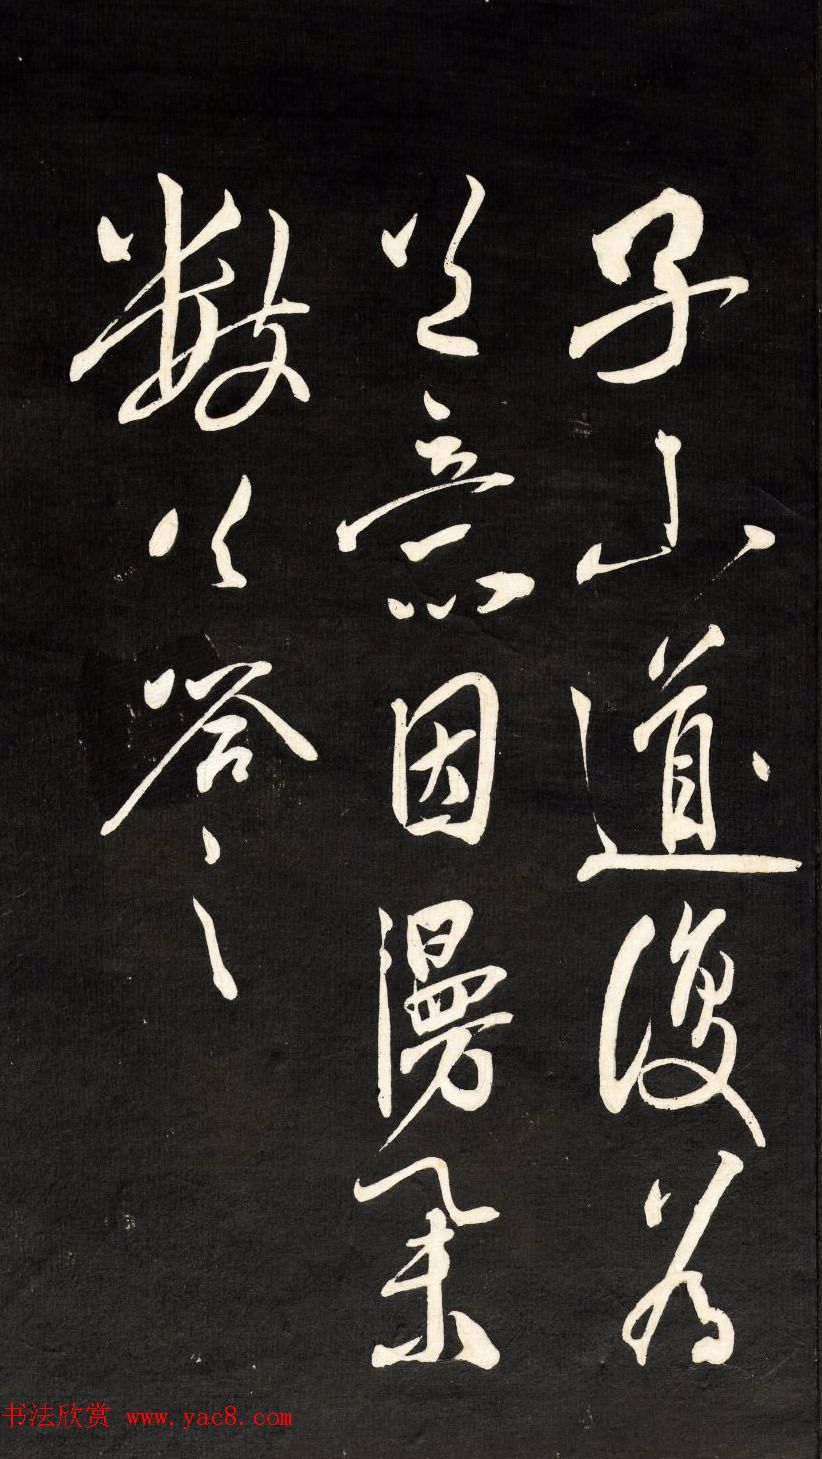 子山道復為
意因漫
数以答之
书法欣赏 www.yac8.com